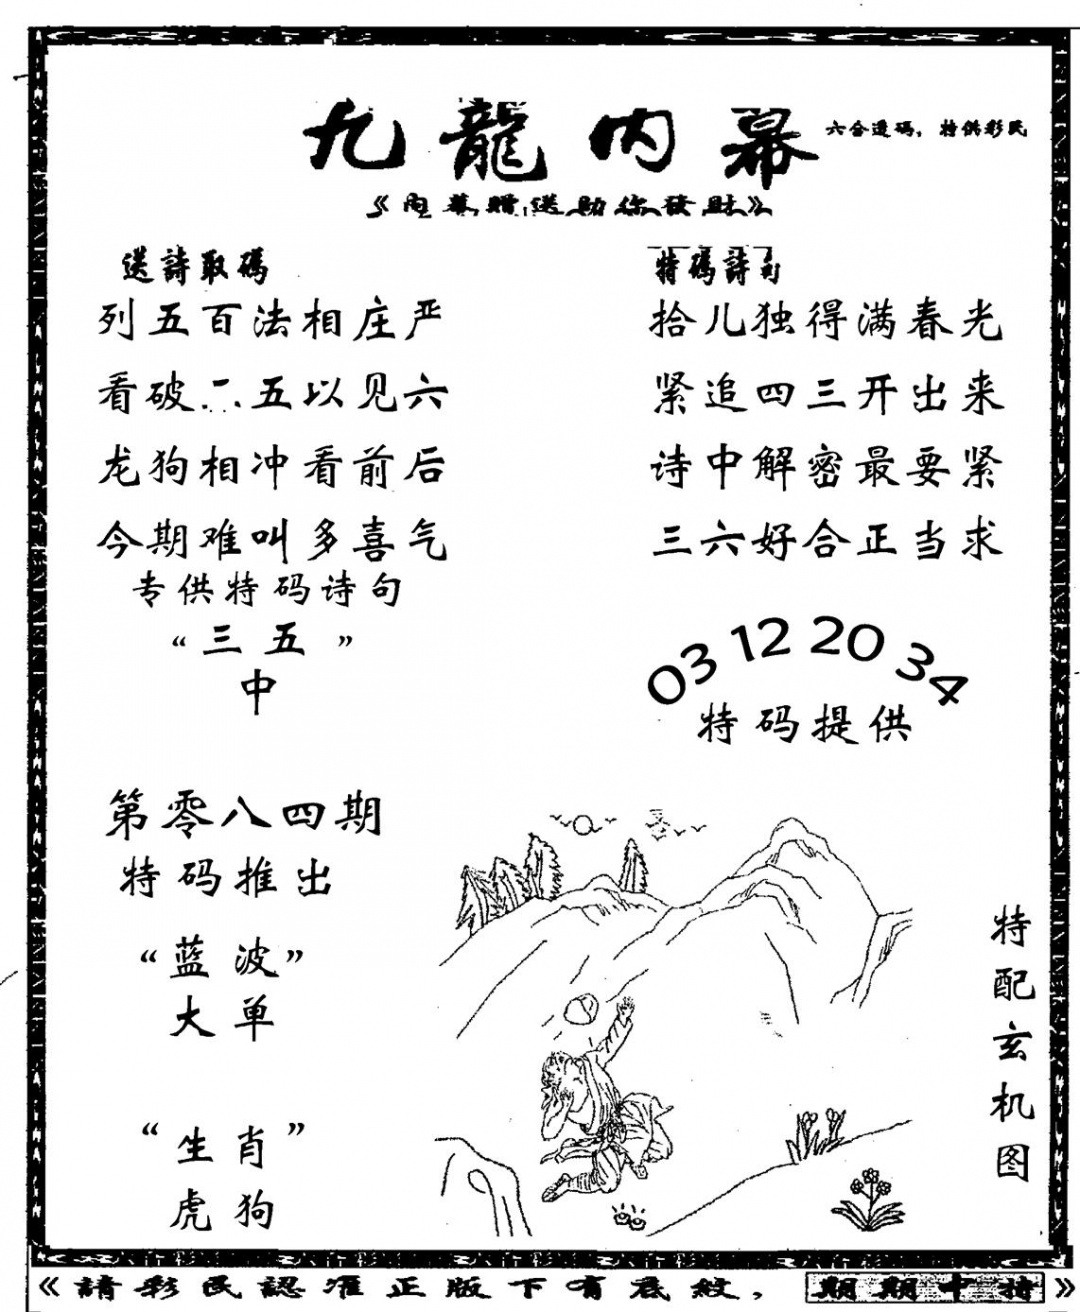 九龍内幕
六合透码，特供彩民
《内幕贈送助你發財》
送詩取碼
列五百法相庄严
看破二五以见六
龙狗相冲看前后
今期难叫多喜气
专供特码诗句
“三五”
中
特碼詩句
拾儿独得满春光
紧追四三开出来
诗中解密最要紧
三六好合正当求
03 12 20 34
特码提供
第零八四期
特码推出
“蓝波”
大单
“生肖”
虎狗
特配玄机图
《請彩民認准正版下有底紋，期期中特》